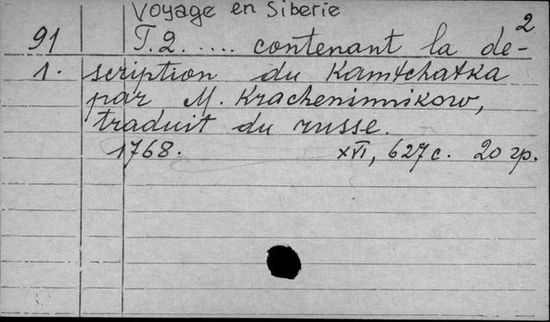 Voyage en Siberie
2
91 T.2 ..... contenant la de-
1. scription du Kamtchatka
par M. Kracheninnikow,
traduit du russe.
1768. XVI, 627 с. 20 гр.